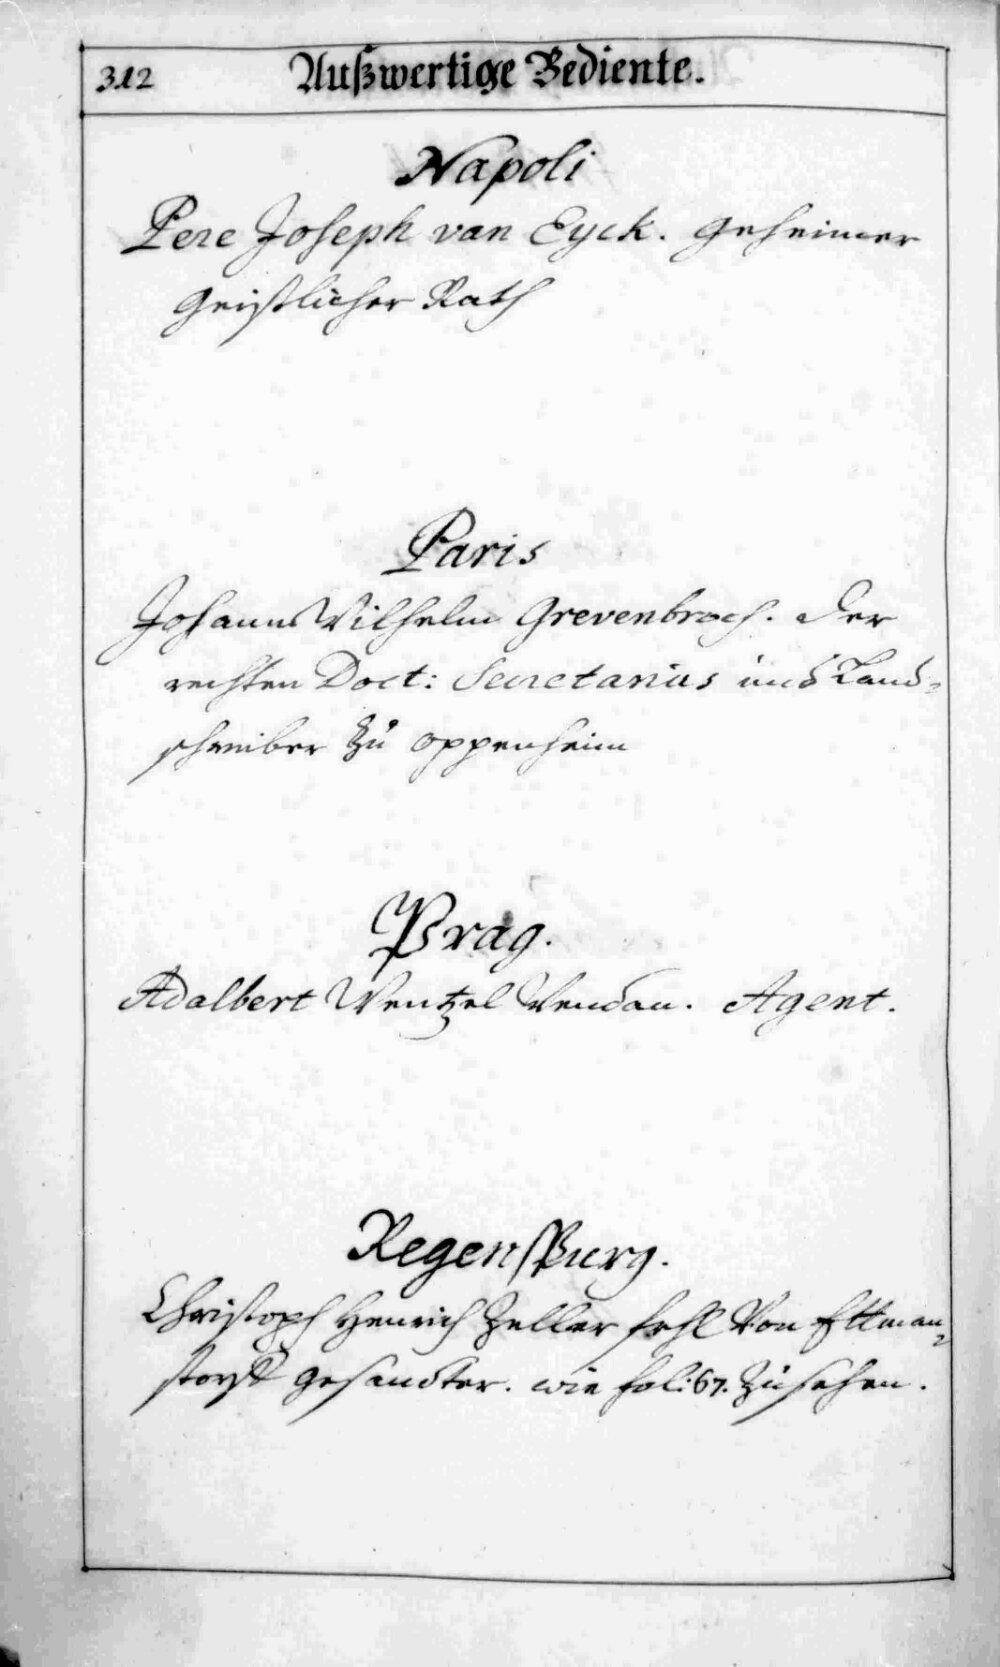 312
Außwertige Bediente.
Napoli
Pere Joseph van Eyck. geheimer
geistlicher Rath
Paris
Johann Wilhelm Grevenbroch. der
rechten Doct: Secretarius und Land-
schreiber zu oppenheim
Prag.
Adalbert Wentzel Agent.
RegensPurg.
Christoph Henrich Zeller von Ettman-
storff gesandter. wie fol: 67. zu sehen.